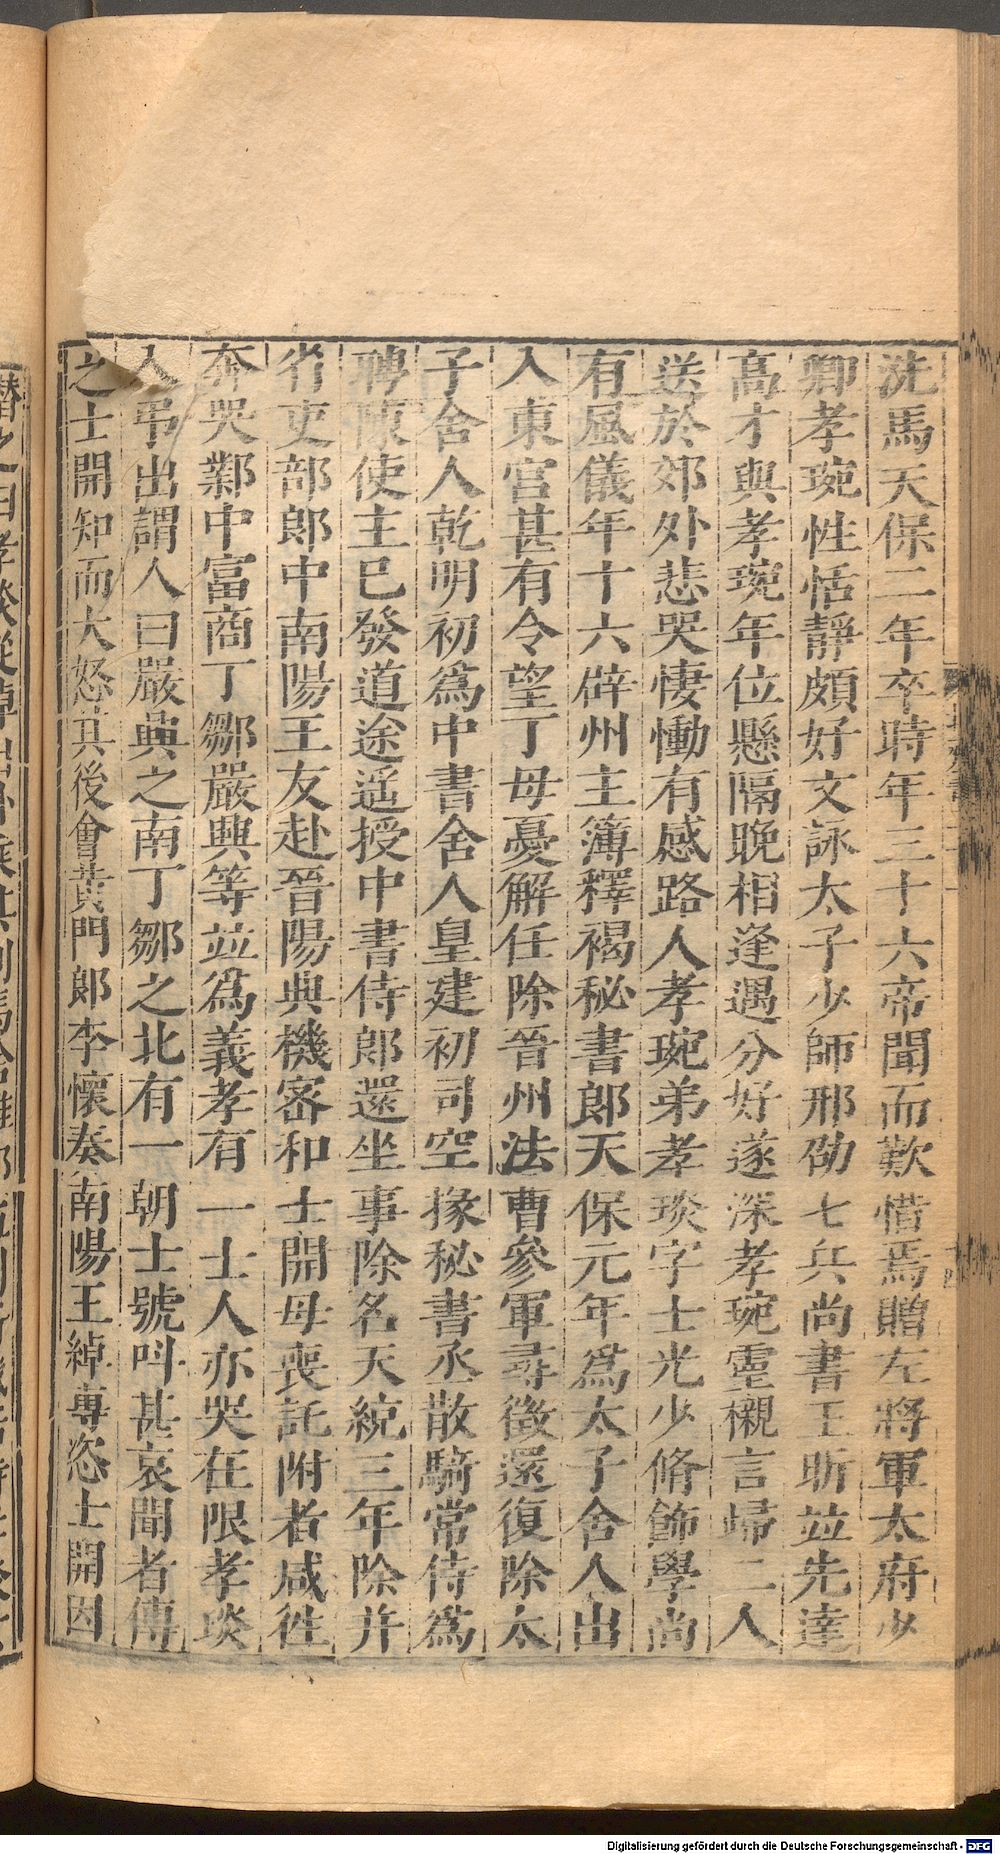 洗馬天保二年卒時年三十六帝聞而歎惜焉贈左將軍太府少
卿孝琬性恬靜頗好文詠太子少師邢劭七兵尚書王昕並先達
高才與孝琬年位懸隔晚相逢遇分好遂深孝琬靈櫬言歸二人
送於郊外悲哭悽慟有感路人孝琬弟孝琰字士光少脩飾學尚
有風儀年十六辟州主簿釋褐秘書郎天保元年爲太子舍人出
入東宮甚有令望丁母憂解任除晉州法曹參軍尋徵還復除太
子舍人乾明初爲中書舍人皇建初司空掾秘書丞散騎常侍爲
聘陳使主已發道途遥授中書侍郎還坐事除名天統三年除并
省吏部郎中南陽王友赴晉陽典機密和士開母喪託附者咸往
奔哭鄴中富商丁鄒嚴興等並爲義孝有一士人亦哭在限孝琰
入弔出謂人曰嚴興之南丁鄒之北有一朝士號叫甚哀聞者傳
之士開知而大怒其後會黃門郎李懷奏南陽王綽專恣士開因
Digitalisierung gefördert durch die Deutsche Forschungsgemeinschaft - DFG